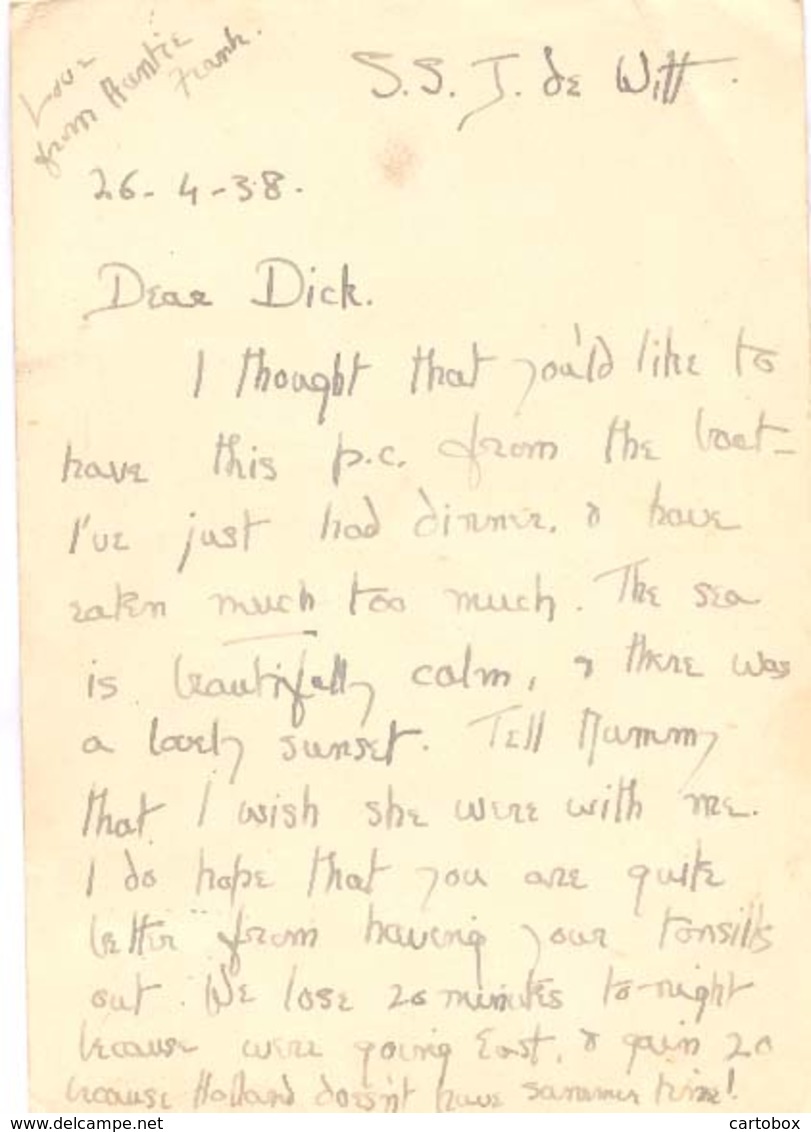 Love
from Auntie
Frank.
S.S. J. de Witt.
26-4-38.
Dear Dick.
I thought that you'd like to
have this p.c. from the boat-
I've just had dinner, & have
eaten much too much. The sea
is beautifully calm, & there was
a lovely sunset. Tell Mummy
that I wish she were with me.
I do hope that you are quite
better from having your tonsills
out. We lose 20 minutes to-night
because were going East, & gain 20
because Holland doesn't have summer time!
delcampe.net
cartobox